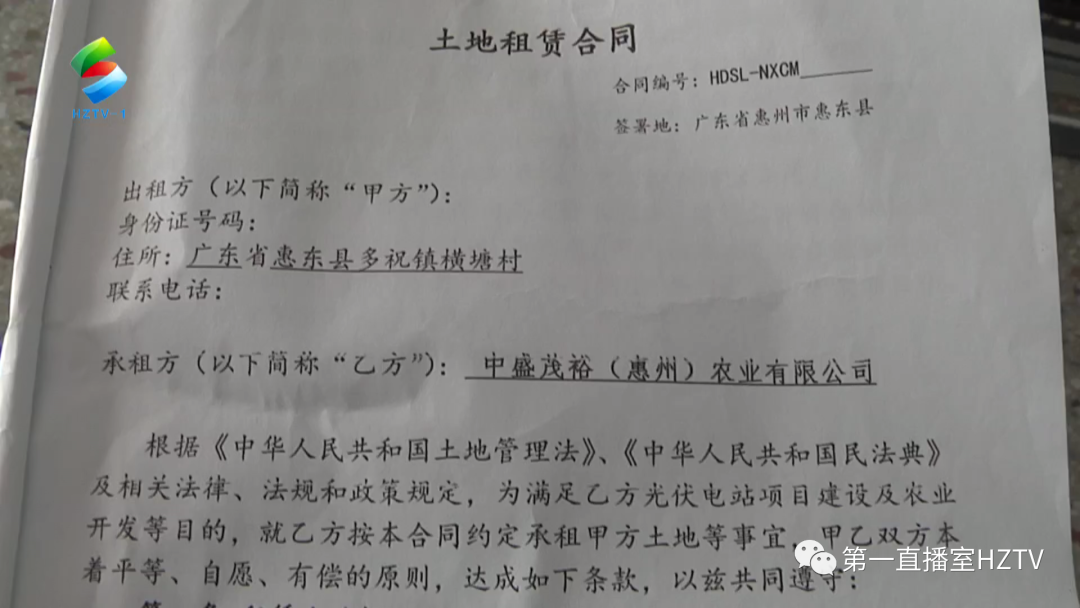 土地租赁合同
合同编号：HDSL-NXCM
签署地：广东省惠州市惠东县
出租方（以下简称“甲方”）：
身份证号码：
住所：广东省惠东县多祝镇横塘村
联系电话：
承租方（以下简称“乙方”）：中盛茂裕（惠州）农业有限公司
根据《中华人民共和国土地管理法》、《中华人民共和国民法典》
及相关法律、法规和政策规定，为满足乙方光伏电站项目建设及农业
开发等目的，就乙方按本合同约定承租甲方土地等事宜，甲乙双方本
着平等、自愿、有偿的原则，达成如下条款，以兹共同遵守：
第一直播室HZTV